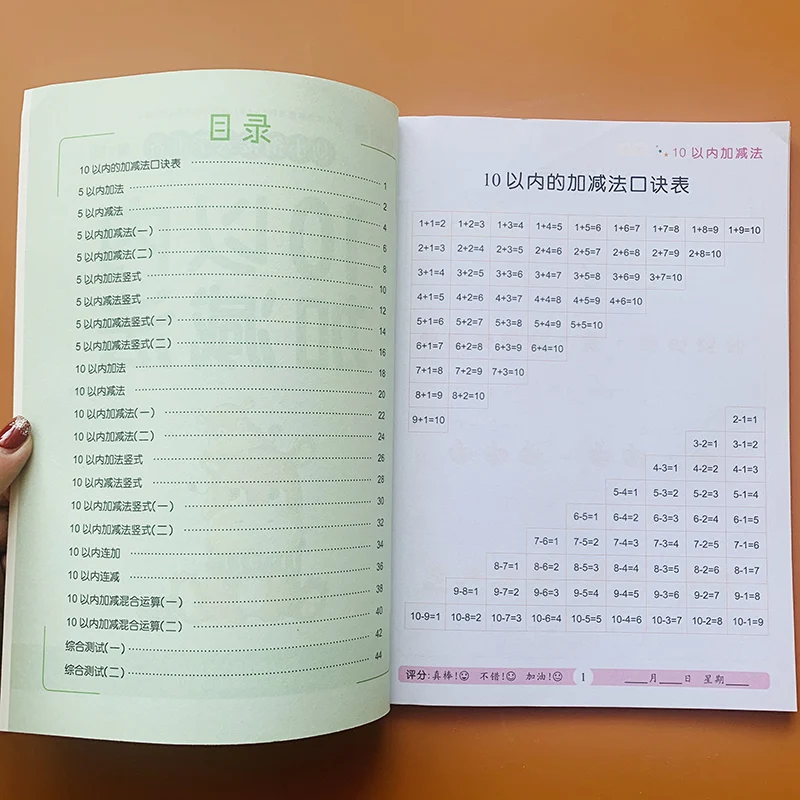 目录
10以内的加减法口诀表 1
5以内加法 2
5以内减法 4
5以内加减法(一) 6
5以内加减法(二) 8
5以内加法竖式 10
5以内减法竖式 12
5以内加减法竖式(一) 14
5以内加减法竖式(二) 16
10以内加法 18
10以内减法 20
10以内加减法(一) 22
10以内加减法(二) 24
10以内加法竖式 26
10以内减法竖式 28
10以内加减法竖式(一) 30
10以内加减法竖式(二) 32
10以内连加 34
10以内连减 36
10以内加减混合运算(一) 38
10以内加减混合运算(二) 40
综合测试(一) 42
综合测试(二) 44
10以内加减法
10以内的加减法口诀表
1+1=2 1+2=3 1+3=4 1+4=5 1+5=6 1+6=7 1+7=8 1+8=9 1+9=10
2+1=3 2+2=4 2+3=5 2+4=6 2+5=7 2+6=8 2+7=9 2+8=10
3+1=4 3+2=5 3+3=6 3+4=7 3+5=8 3+6=9 3+7=10
4+1=5 4+2=6 4+3=7 4+4=8 4+5=9 4+6=10
5+1=6 5+2=7 5+3=8 5+4=9 5+5=10
6+1=7 6+2=8 6+3=9 6+4=10
7+1=8 7+2=9 7+3=10
8+1=9 8+2=10
9+1=10 2-1=1
3-2=1 3-1=2
4-3=1 4-2=2 4-1=3
5-4=1 5-3=2 5-2=3 5-1=4
6-5=1 6-4=2 6-3=3 6-2=4 6-1=5
7-6=1 7-5=2 7-4=3 7-3=4 7-2=5 7-1=6
8-7=1 8-6=2 8-5=3 8-4=4 8-3=5 8-2=6 8-1=7
9-8=1 9-7=2 9-6=3 9-5=4 9-4=5 9-3=6 9-2=7 9-1=8
10-9=1 10-8=2 10-7=3 10-6=4 10-5=5 10-4=6 10-3=7 10-2=8 10-1=9
评分:真棒! 不错! 加油! 1 ____月____日 星期____